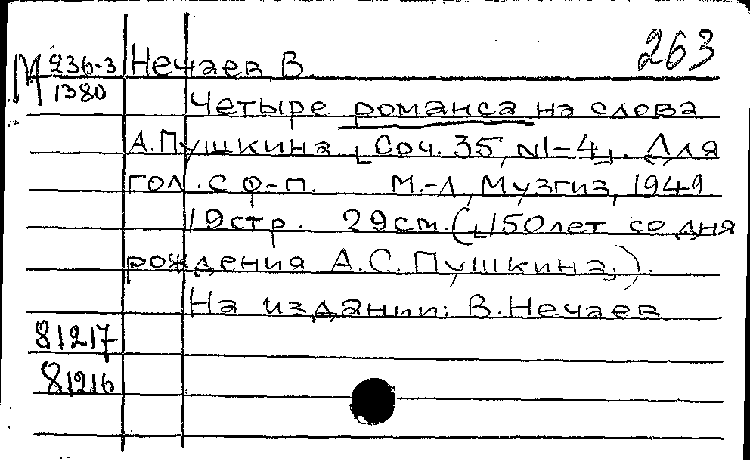 263
М 236-3 Нечаев В.
1380
Четыре романса на слова
А.Пушкина [Соч. 35, №1-4]. Для
гол. с ф-п. М.-Л, Музгиз, 1949
19стр. 29см. ([150лет со дня
рождения А.С.Пушкина]).
На издании: В.Нечаев
81217
81216